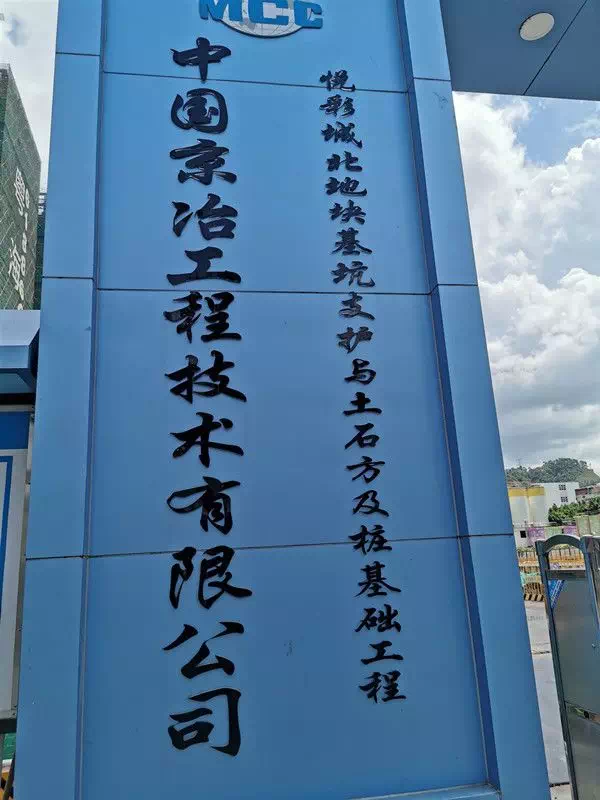 MCC
中国京冶工程技术有限公司
悦彩城北地块基坑支护与土石方及桩基础工程